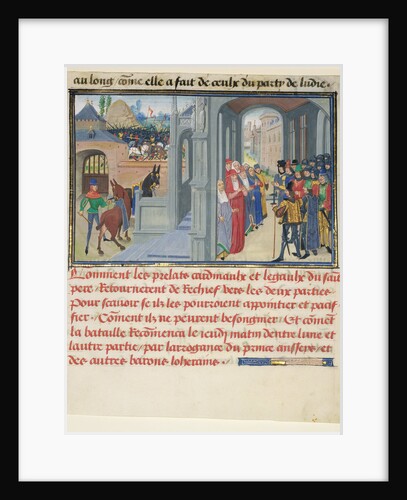 au long come elle a fait de ceulx du party de ludie.
Comment les prelats cardinaulx et legaulx du saĩt
pere Retournerent de Rechief vers les deux parties
Pour scauoir se ilz les pourroient appointier et pacif
fier. Coment ilz ne peurent besongnier. Et comẽt
la bataille Recõmenca le ieudj matin dentre lune et
lautre partie/ par larrogance du prince anssĕys et
des autres barons loherains.